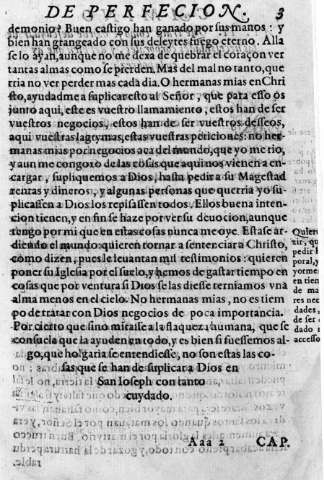 DE PERFECION. 3
demonio? Buen castigo han ganado por sus manos: y
bien han grangeado con sus deleytes fuego eterno. Alla
se lo ayan, aunque no me dexa de quebrar el coraçon ver
tantas almas como se pierden. Mas del mal no tanto, que
rria no ver perder mas cada dia. O hermanas mias en Chri
sto, ayudadme a suplicar esto al Señor, que para esso os
junto aqui, este es vuestro llamamiento, estos han de ser
vuestros negocios, estos han de ser vuestros desseos,
aqui vuestras lagrymas, estas vuestras peticiones: no her
manas mias por negocios aca del mundo, que yo me rio,
y aun me congoxo de las cosas que aqui nos vienen a en-
cargar, supliquemos a Dios, hasta pedir a su Magestad
rentas y dineros, y algunas personas que querria yo su-
plicassen a Dios los repisassen todos. Ellos buena inten-
cion tienen, y en fin se haze por ver su deuocion, aunque
tengo por mi que en estas cosas nunca me oye. Estase ar-
diendo el mundo: quieren tornar a sentenciar a Christo,
como dizen, pues le leuantan mil testimonios: quieren
poner su Iglesia por el suelo, y hemos de gastar tiempo en
cosas que por ventura si Dios se las diesse terniamos vna
alma menos en el cielo. No hermanas mias, no es tiem
po de tratar con Dios negocios de poca importancia.
Por cierto que sino mirasse a la flaqueza humana, que se
consuela que la ayuden en todo, y es bien si fuessemos al-
go, que holgaria se entendiesse, no son estas las co-
sas que se han de suplicar a Dios en
San Ioseph con tanto
cuydado.
Aaa 2 CAP.